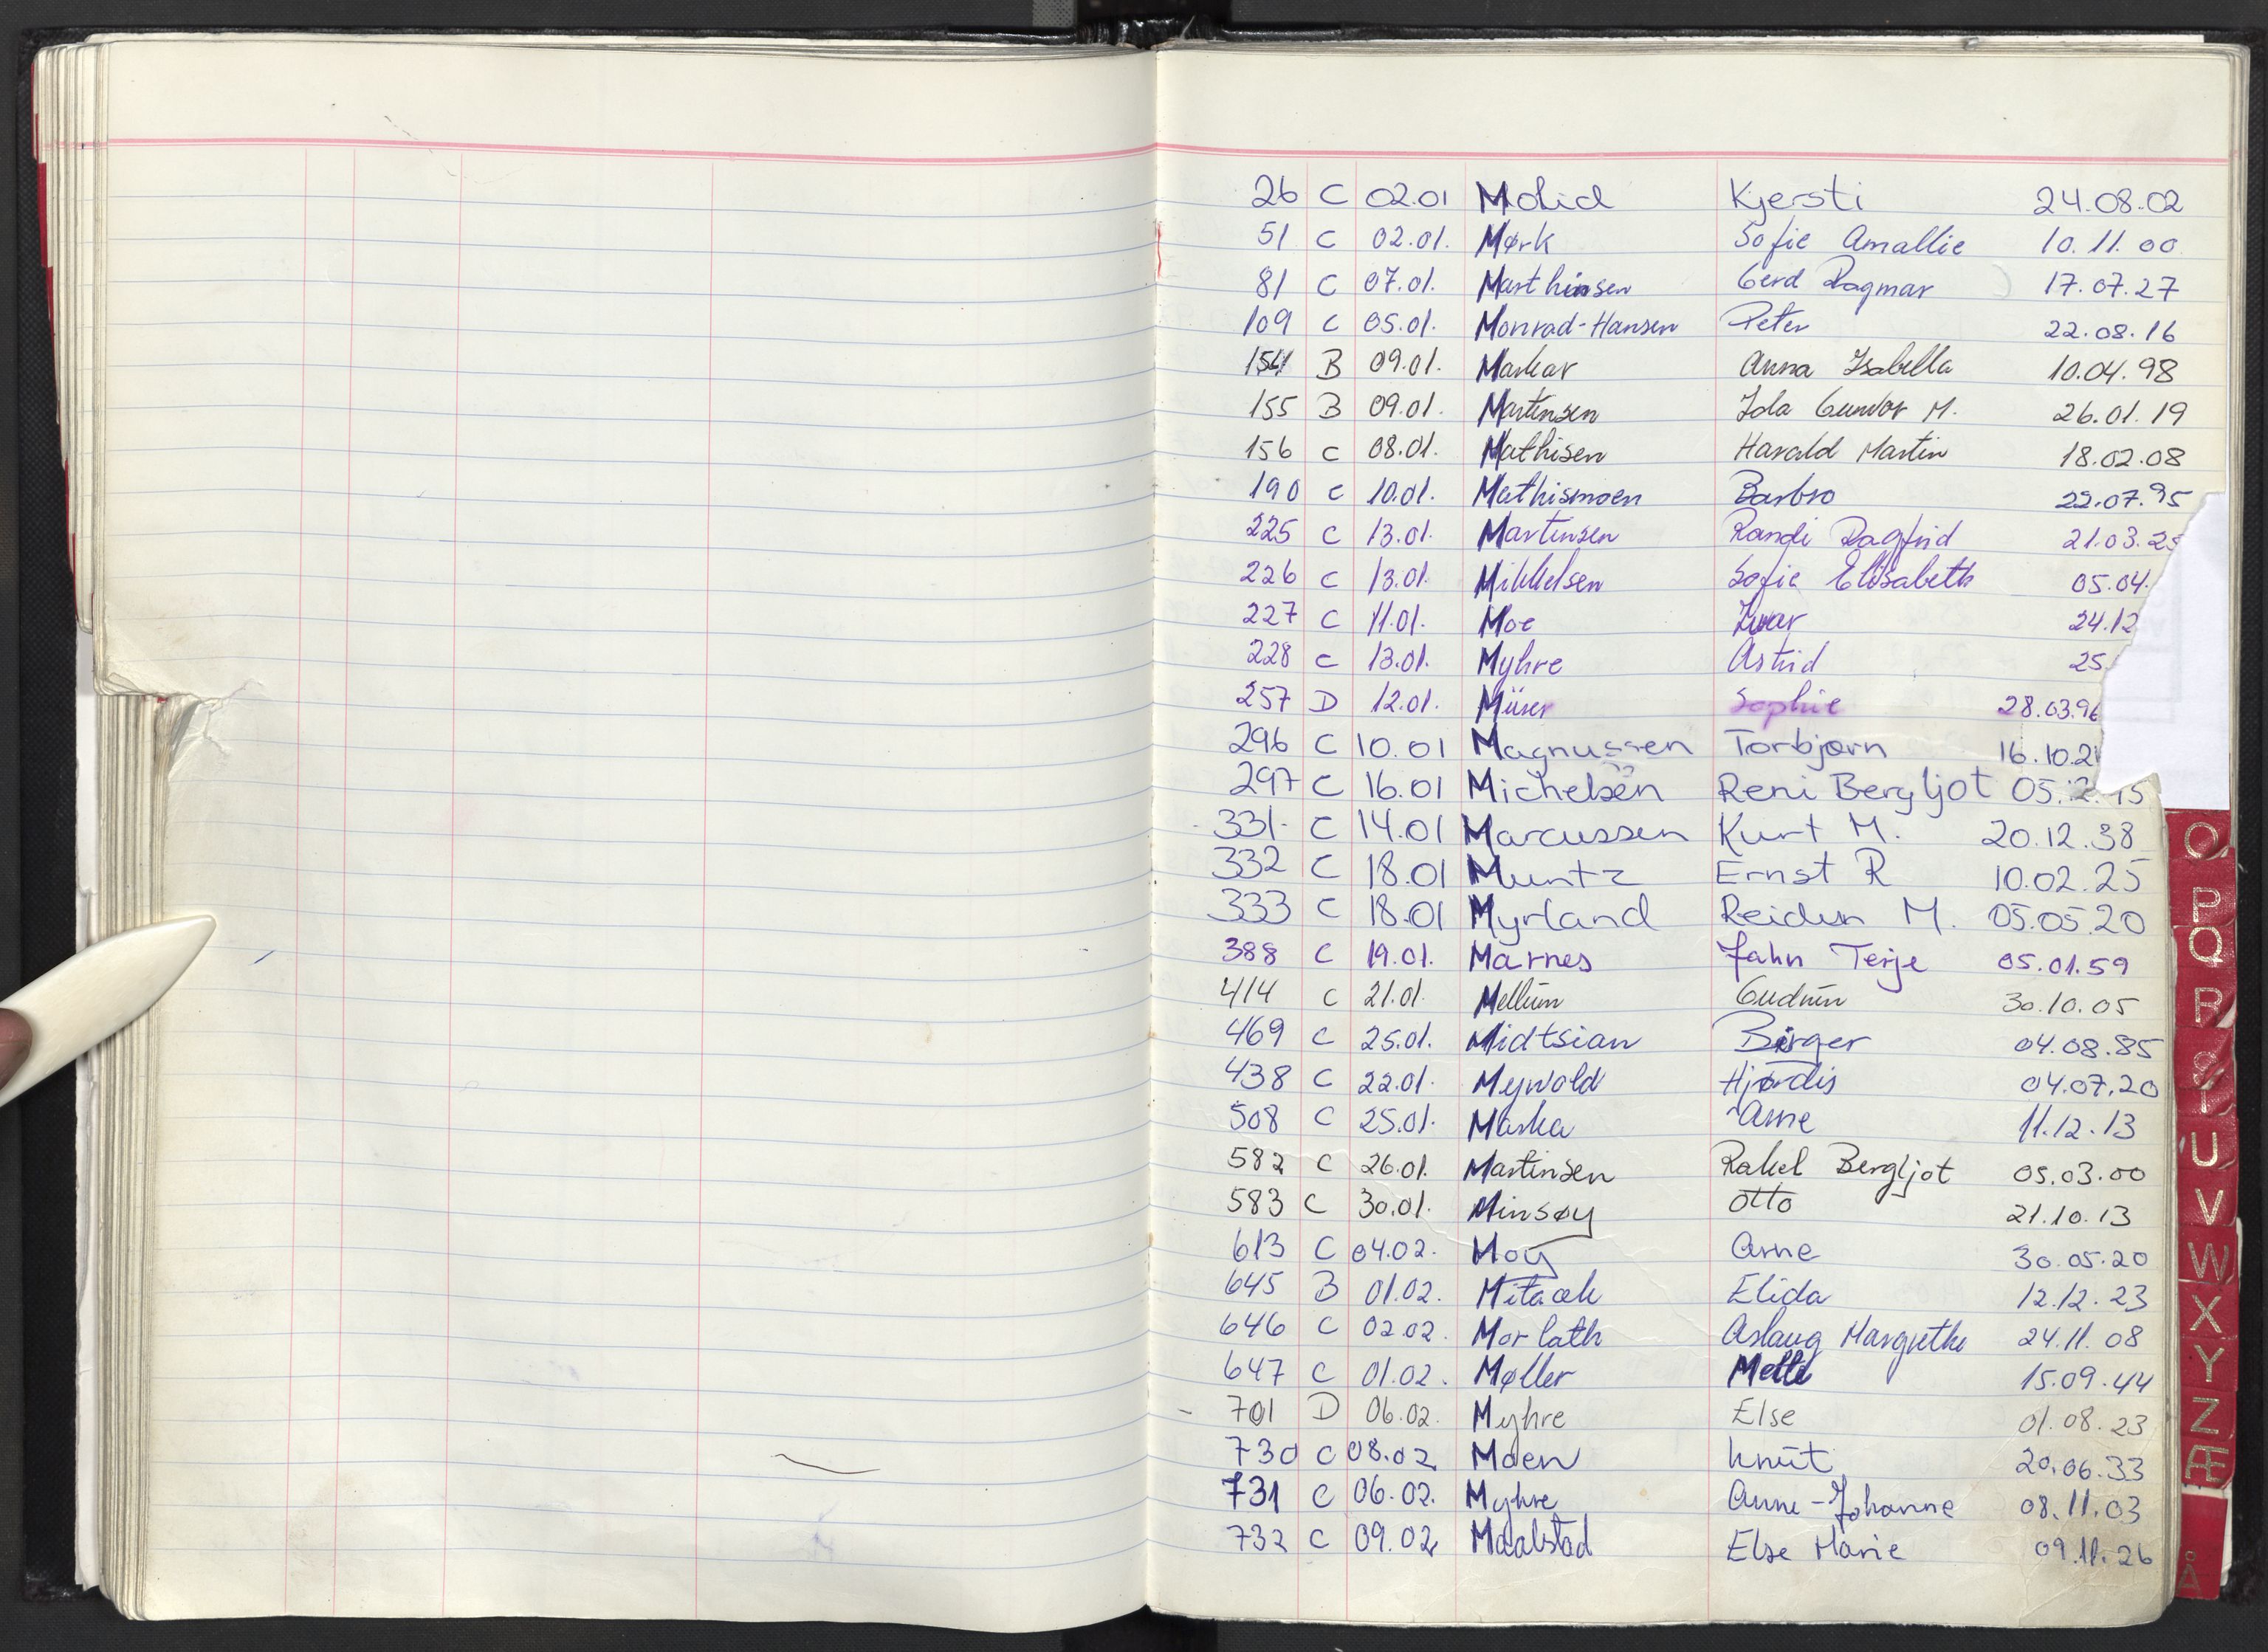 26 C 02.01 Molid Kjersti 24.08.02
51 C 02.01. Mørk Sofie Amallie 10.11.00
81 C 07.01. Marthinsen Gerd Dagmar 17.07.27
109 C 05.01. Monrad-Hansen Peter 22.08.16
154 B 09.01. Maskar Anna Isabella 10.04.98
155 B 09.01. Martinsen Ida Gunvor M. 26.01.19
156 C 08.01. Mathisen Harald Martin 18.02.08
190 C 10.01. Mathismoen Barbro 22.07.95
225 C 13.01. Martinsen Randi Dagfrid 21.03.25
226 C 13.01. Mikkelsen Sofie Elisabeth 05.04.
227 C 11.01. Moe Ivar 24.12
228 C 13.01. Myhre Astrid 25.
257 D 12.01. Müser Sophie 28.03.96
296 C 10.01 Magnussen Torbjørn 16.10.21
297 C 16.01 Michelsen Reni Bergljot 05.12.15
331 C 14.01 Marcussen Kurt M. 20.12.38
332 C 18.01 Muntz Ernst R 10.02.25
333 C 18.01 Myrland Reidun M. 05.05.20
388 C 19.01. Marnes Jahn Terje 05.01.59
414 C 21.01. Mellum Gudrun 30.10.05
469 C 25.01. Midtsian Birger 04.08.85
438 C 22.01. Myrvold Hjørdis 04.07.20
508 C 25.01. Maska Arne 11.12.13
582 C 26.01. Martinsen Rakel Bergljot 05.03.00
583 C 30.01. Minsøy Otto 21.10.13
613 C 04.02. Moy Arne 30.05.20
645 B 01.02. Elida 12.12.23
646 C 02.02. Morlath Aslaug Margrethe 24.11.08
647 C 01.02. Møller Mette 15.09.44
701 D 06.02. Myhre Else 01.08.23
730 C 08.02. Moen Knut 20.06.33
731 C 06.02. Myhre Anne-Johanne 08.11.03
732 C 09.02. Maalstad Else Marie 09.11.26
O
P
Q
R
S
T
U
V
W
X
Y
Z
Æ
Å